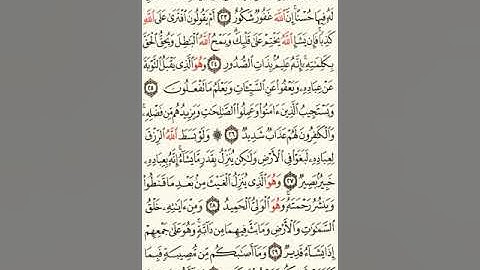 لَهُۥ فِيهَا حُسْنًا ۚ إِنَّ ٱللَّهَ غَفُورٌ شَكُورٌ ٢٣ أَمْ يَقُولُونَ ٱفْتَرَىٰ عَلَى ٱللَّهِ
كَذِبًا ۖ فَإِن يَشَإِ ٱللَّهُ يَخْتِمْ عَلَىٰ قَلْبِكَ ۗ وَيَمْحُ ٱللَّهُ ٱلْبَٰطِلَ وَيُحِقُّ ٱلْحَقَّ
بِكَلِمَٰتِهِۦٓ ۚ إِنَّهُۥ عَلِيمٌۢ بِذَاتِ ٱلصُّدُورِ ٢٤ وَهُوَ ٱلَّذِى يَقْبَلُ ٱلتَّوْبَةَ
عَنْ عِبَادِهِۦ وَيَعْفُوا۟ عَنِ ٱلسَّيِّـَٔاتِ وَيَعْلَمُ مَا تَفْعَلُونَ ٢٥
وَيَسْتَجِيبُ ٱلَّذِينَ ءَامَنُوا۟ وَعَمِلُوا۟ ٱلصَّٰلِحَٰتِ وَيَزِيدُهُم مِّن فَضْلِهِۦ ۚ
وَٱلْكَٰفِرُونَ لَهُمْ عَذَابٌ شَدِيدٌ ٢٦ ۞ وَلَوْ بَسَطَ ٱللَّهُ ٱلرِّزْقَ
لِعِبَادِهِۦ لَبَغَوْا۟ فِى ٱلْأَرْضِ وَلَٰكِن يُنَزِّلُ بِقَدَرٍ مَّا يَشَآءُ ۚ إِنَّهُۥ بِعِبَادِهِۦ
خَبِيرٌۢ بَصِيرٌ ٢٧ وَهُوَ ٱلَّذِى يُنَزِّلُ ٱلْغَيْثَ مِنۢ بَعْدِ مَا قَنَطُوا۟
وَيَنشُرُ رَحْمَتَهُۥ ۚ وَهُوَ ٱلْوَلِىُّ ٱلْحَمِيدُ ٢٨ وَمِنْ ءَايَٰتِهِۦ خَلْقُ
ٱلسَّمَٰوَٰتِ وَٱلْأَرْضِ وَمَا بَثَّ فِيهِمَا مِن دَآبَّةٍ ۚ وَهُوَ عَلَىٰ جَمْعِهِمْ
إِذَا يَشَآءُ قَدِيرٌ ٢٩ وَمَآ أَصَٰبَكُم مِّن مُّصِيبَةٍ فَبِمَا